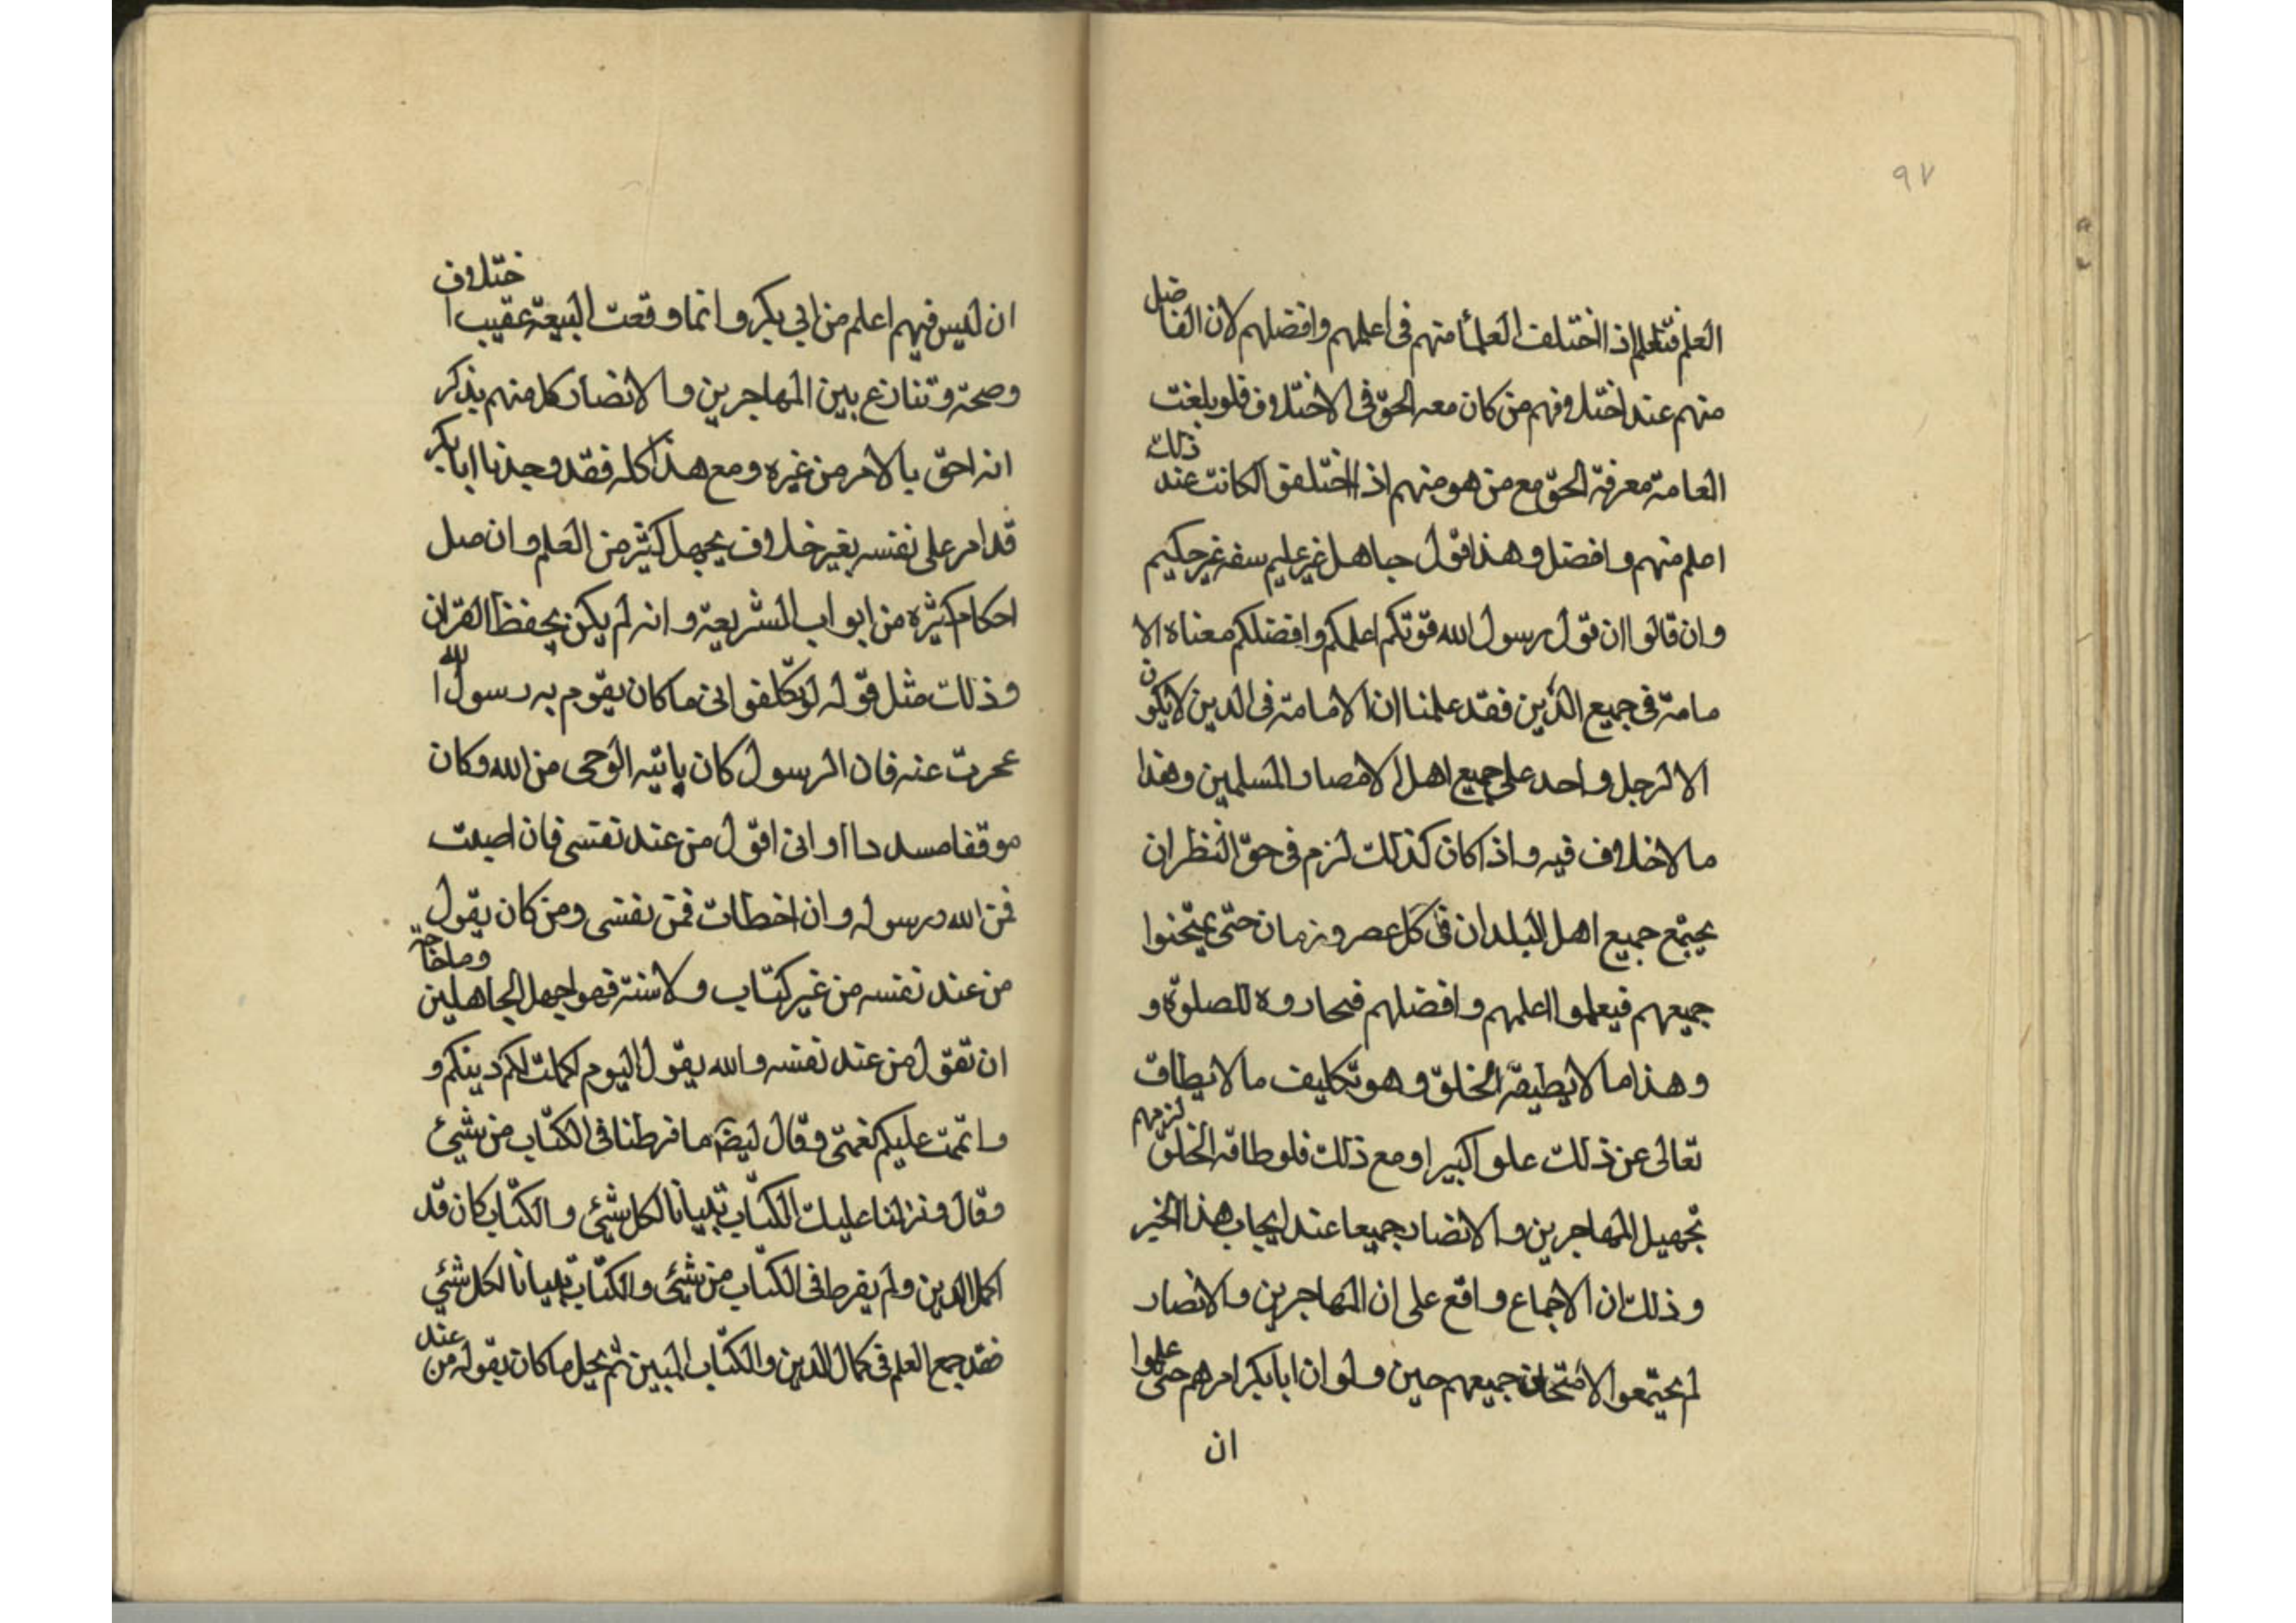 ٩٧
العلم فتعلم اذا اختلفت العلمأ منهم فى اعلمهم وافضلهم لان الفاضل
منهم عند اختلافهم من كان معه الحق فى الاختلاف فلو بلغت
العامة معرفة الحق مع من هو منهم اذا اختلفوا لكانت عند ذلك
اعلم منهم وافضل وهذا قول جاهل غير عليم سفه غير حكيم
وان قالوا ان قول رسول الله قوتكم اعلمكم وافضلكم معناه الا
مامة فى جميع الدين فقد علمنا ان الامامة فى الدين لا يكون
الا لرجل واحد على جميع اهل الامصار المسلمين وهذا
ما لا خلاف فيه واذا كان كذلك لزم فى حق النظر ان
يجتمع جميع اهل البلدان فى كل عصر وزمان حتى يمتحنوا
جميعهم فيعلموا اعلمهم وافضلهم فيحاروه للصلوة و
وهذا ما لا يطيقه الخلق وهو تكليف ما لا يطاق
تعالى عن ذلك علوا كبيرا ومع ذلك فلو طاقه الخلق لزمهم
تجهيل المهاجرين والانصار جميعا عند ايجاب هذا الخبر
وذلك ان الاجماع واقع على ان المهاجرين والانصار
لم يجتمعوا لامتحان جميعهم حين ولو ان ابابكر امرهم حتى علموا
ان
ان ليس فيهم اعلم من ابى بكر وانما وقعت البيعة عقيب اختلاف
وصحة وتنازع بين المهاجرين والانصار كل منهم يذكر
انه احق بالامر من غيره ومع هذا كله فقد وجدنا ابابكر
قد امر على نفسه بغير خلاف بجهل كثير من العلم وان صل
احكام كثيره من ابواب الشريعة وانه لم يكن يحفظ القران
وذلك مثل قوله لو كلفوانى ما كان يقوم به رسول الله
عجزت عنه فان الرسول كان ياتيه الوحى من الله وكان
موقفا مسددا او انى اقول من عند نفسى فان اصبت
فمن الله ورسوله وان اخطات فمن نفسى ومن كان يقول
من عند نفسه من غير كتاب ولا سنة فهو اجهل الجاهلين وما حاجته
ان تقول من عند نفسه والله يقول اليوم اكملت لكم دينكم و
واتممت عليكم نعمتى وقال ايضا ما فرطنا فى الكتاب من شيئ
وقال ونزلنا عليك الكتاب تبيانا لكل شيئ والكتاب كان قد
اكمل الدين ولم يفرط فى الكتاب من شيئ والكتاب تبيانا لكل شيئ
فقد جمع العلم فى كمال الدين والكتاب المبين ثم يحيل ما كان يقوله من عند